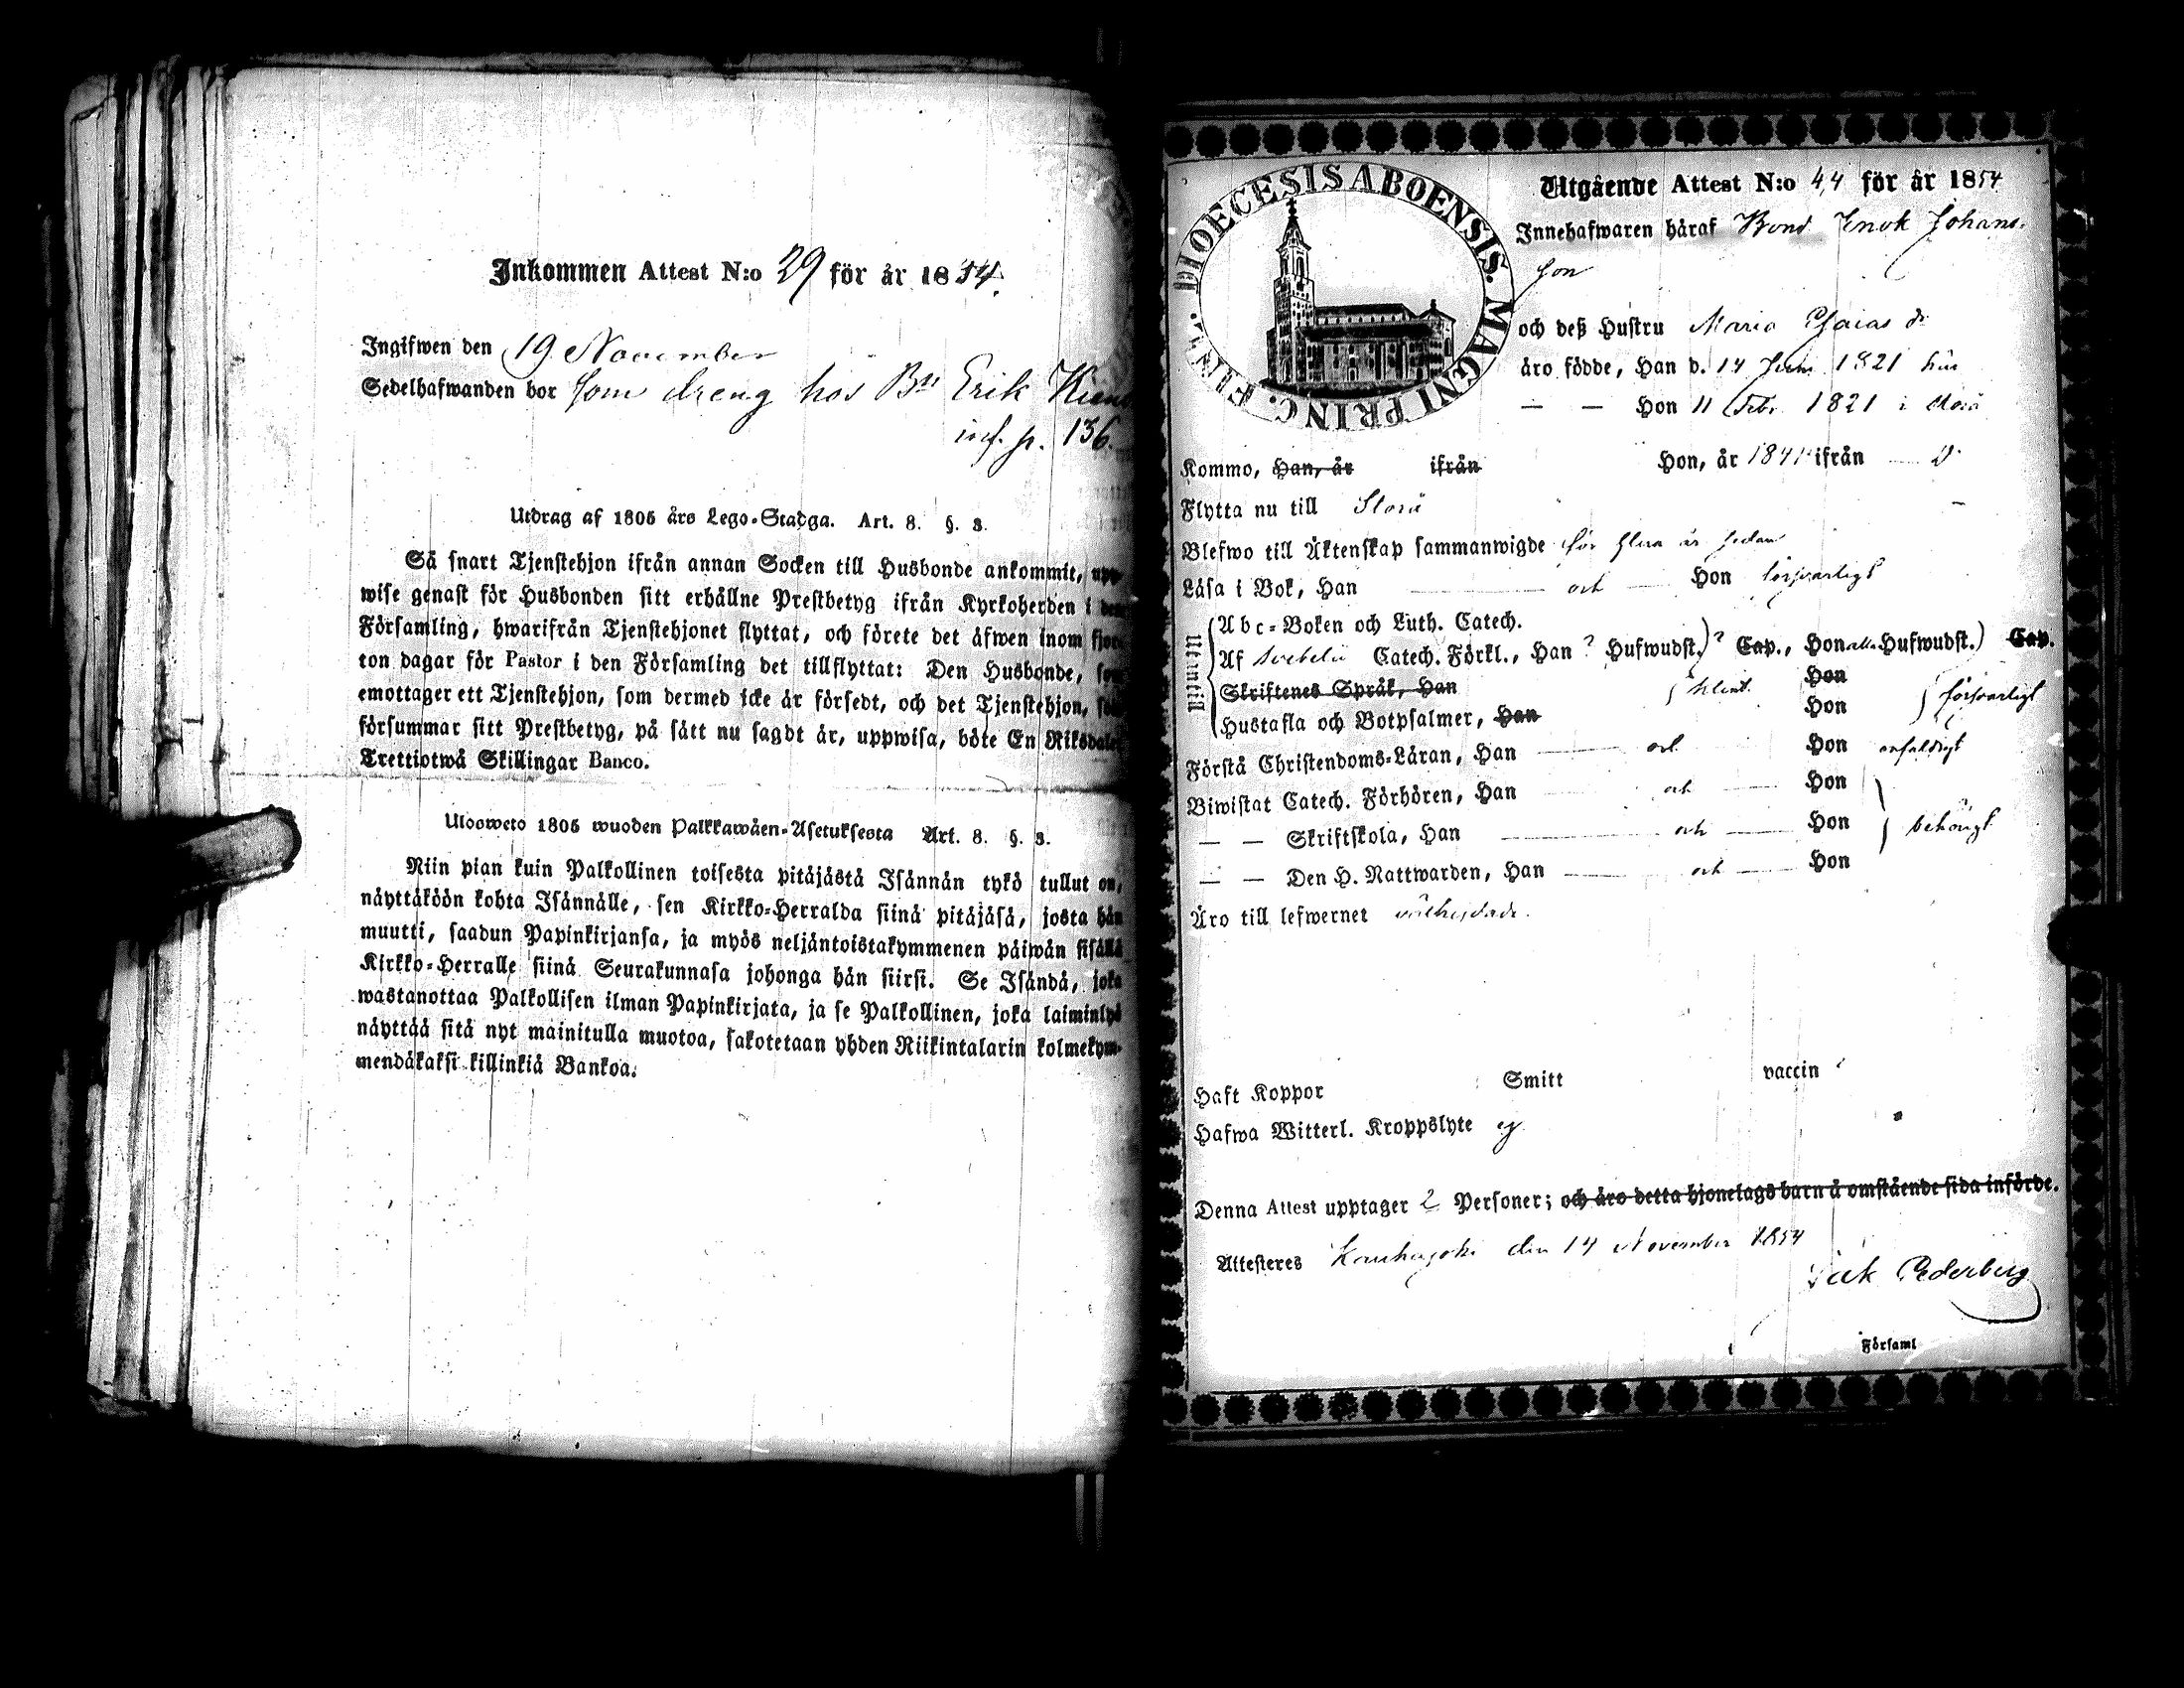 Inkommen Attest N:o 29 för år 1854.
Ingifwen den 19 November
Sedelhafwanden bor som dreng hos Bn Erik
inf. p. 136.
Utdrag af 1805 års Lego-Stadga. Art. 8. §. 3.
Så snart Tjenstehjon ifrån annan Socken till Husbonde ankommit, upp-
wise genast för Husbonden sitt erhållne Prestbetyg ifrån Kyrkoherden i den
Församling, hwarifrån Tjenstehjonet flyttat, och förete det äfwen inom fjor-
ton dagar för Pastor i den Församling det tillflyttat: Den Husbonde, som
emottager ett Tjenstehjon, som dermed icke är försedt, och det Tjenstehjon, som
försummar sitt Prestbetyg, på sätt nu sagdt är, uppwisa, böte En Riksdaler
Trettiotwå Skillingar Banco.
Ulosweto 1805 wuoden Palkkawäen-Asetuksesta Art. 8. §. 3.
Niin pian kuin Palkollinen toisesta pitäjästä Isännän tykö tullut on,
näyttäköön kohta Isännälle, sen Kirkko-Herralda siinä pitäjäsä, josta hän
muutti, saadun Papinkirjansa, ja myös neljäntoistakymmenen päiwän sisällä
Kirkko-Herralle siinä Seurakunnasa johonga hän siirsi. Se Isändä, joka
wastanottaa Palkollisen ilman Papinkirjata, ja se Palkollinen, joka laiminlyö
näyttää sitä nyt mainitulla muotoa, sakotetaan yhden Riikintalarin kolmekym-
mendäkaksi killinkiä Bankoa.
DIOECESIS ABOENSIS. MAGNI PRINC. FINL.
Utgående Attest N:o 44 för år 1854
Innehafwaren häraf Bond Enok Johans-
son
och deß Hustru Maria Esaias dr
äro födde, Han d. 14 Juni 1821 här
— — Hon 11 Febr 1821 i Storå
Kommo, Han, år ifrån Hon, år 1841 ifrån D:o
Flytta nu till Storå
Blefwo till Äktenskap sammanwigde för flera år sedan
Läsa i Bok, Han och Hon försvarligt
Utantill
Abc-Boken och Luth. Catech.
Af Svebelii Catech. Förkl., Han ? Hufwudst.) ? Cap., Hon alla Hufwudst.) Cap.
Skriftenes Språk, Han Hon
Hustafla och Botpsalmer, Han klent. Hon försvarligt
Förstå Christendoms-Läran, Han och Hon enfaldigt
Biwistat Catech. Förhören, Han och Hon
— — Skriftskola, Han och Hon behörigt
— — Den H. Nattwarden, Han och Hon
Äro till lefwernet välfrejdade.
Haft Koppor Smitt vaccin
Hafwa Witterl. Kroppslyte ej
Denna Attest upptager 2 Personer; och äro detta hjonelags barn å omstående sida införde.
Attesteres Kauhajoki den 14 November 1854
Cederberg
Församl